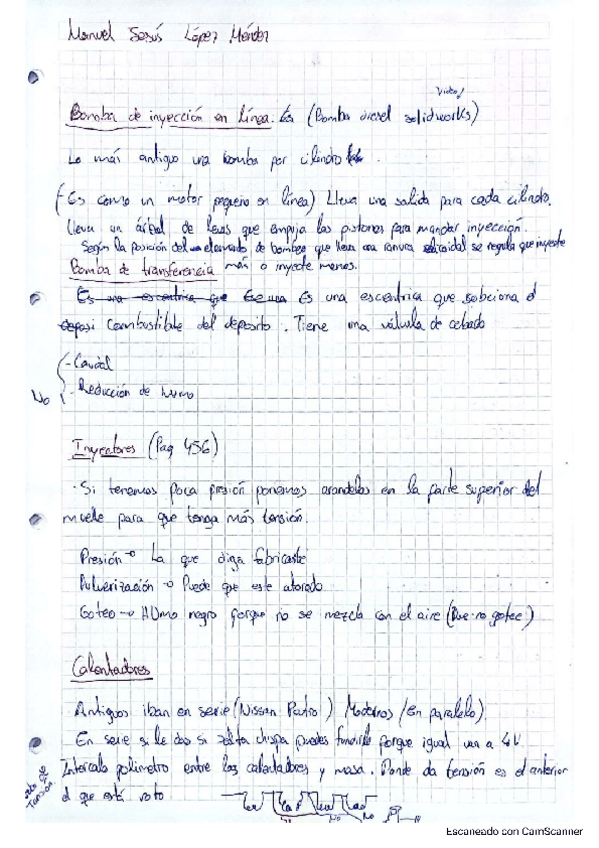 Manuel Jesús López Méndez
Video!
Bomba de inyección en línea. Es (Bomba diesel solidworks)
Lo más antiguo una bomba por cilindro.
(-Es como un motor pequeño en línea) Lleva una salida para cada cilindro.
Lleva un árbol de levas que empuja los pistones para mandar inyección.
Según la posición del elemento de bombeo que lleva una ranura elicoidal se regula que inyecte
Bomba de transferencia más o inyecte menos.
Es una escentrica que Es una Es una escentrica que sobciona el
deposi Combustible del deposito. Tiene una válvula de cebado
- Caudal
No
- Reducción de humo
Inyectores (Pag 456)
· Si tenemos poca presión ponemos arandelas en la parte superior del
muelle para que tenga más tensión.
Presión → La que diga fabricante
Pulverización → Puede que este atorado
Goteo → HUmo negro porque no se mezcla con el aire (Que no gotee)
Calentadores
Antiguos iban en serie (Nissan Patrol) Modernos (En paralelo).
En serie si le das si salta chispa puedes fundirle porque igual van a 4V
Intercalo polimetro entre los calentadores y masa. Donde da tensión es el anterior
al que está roto
Tensión
No No
Escaneado con CamScanner